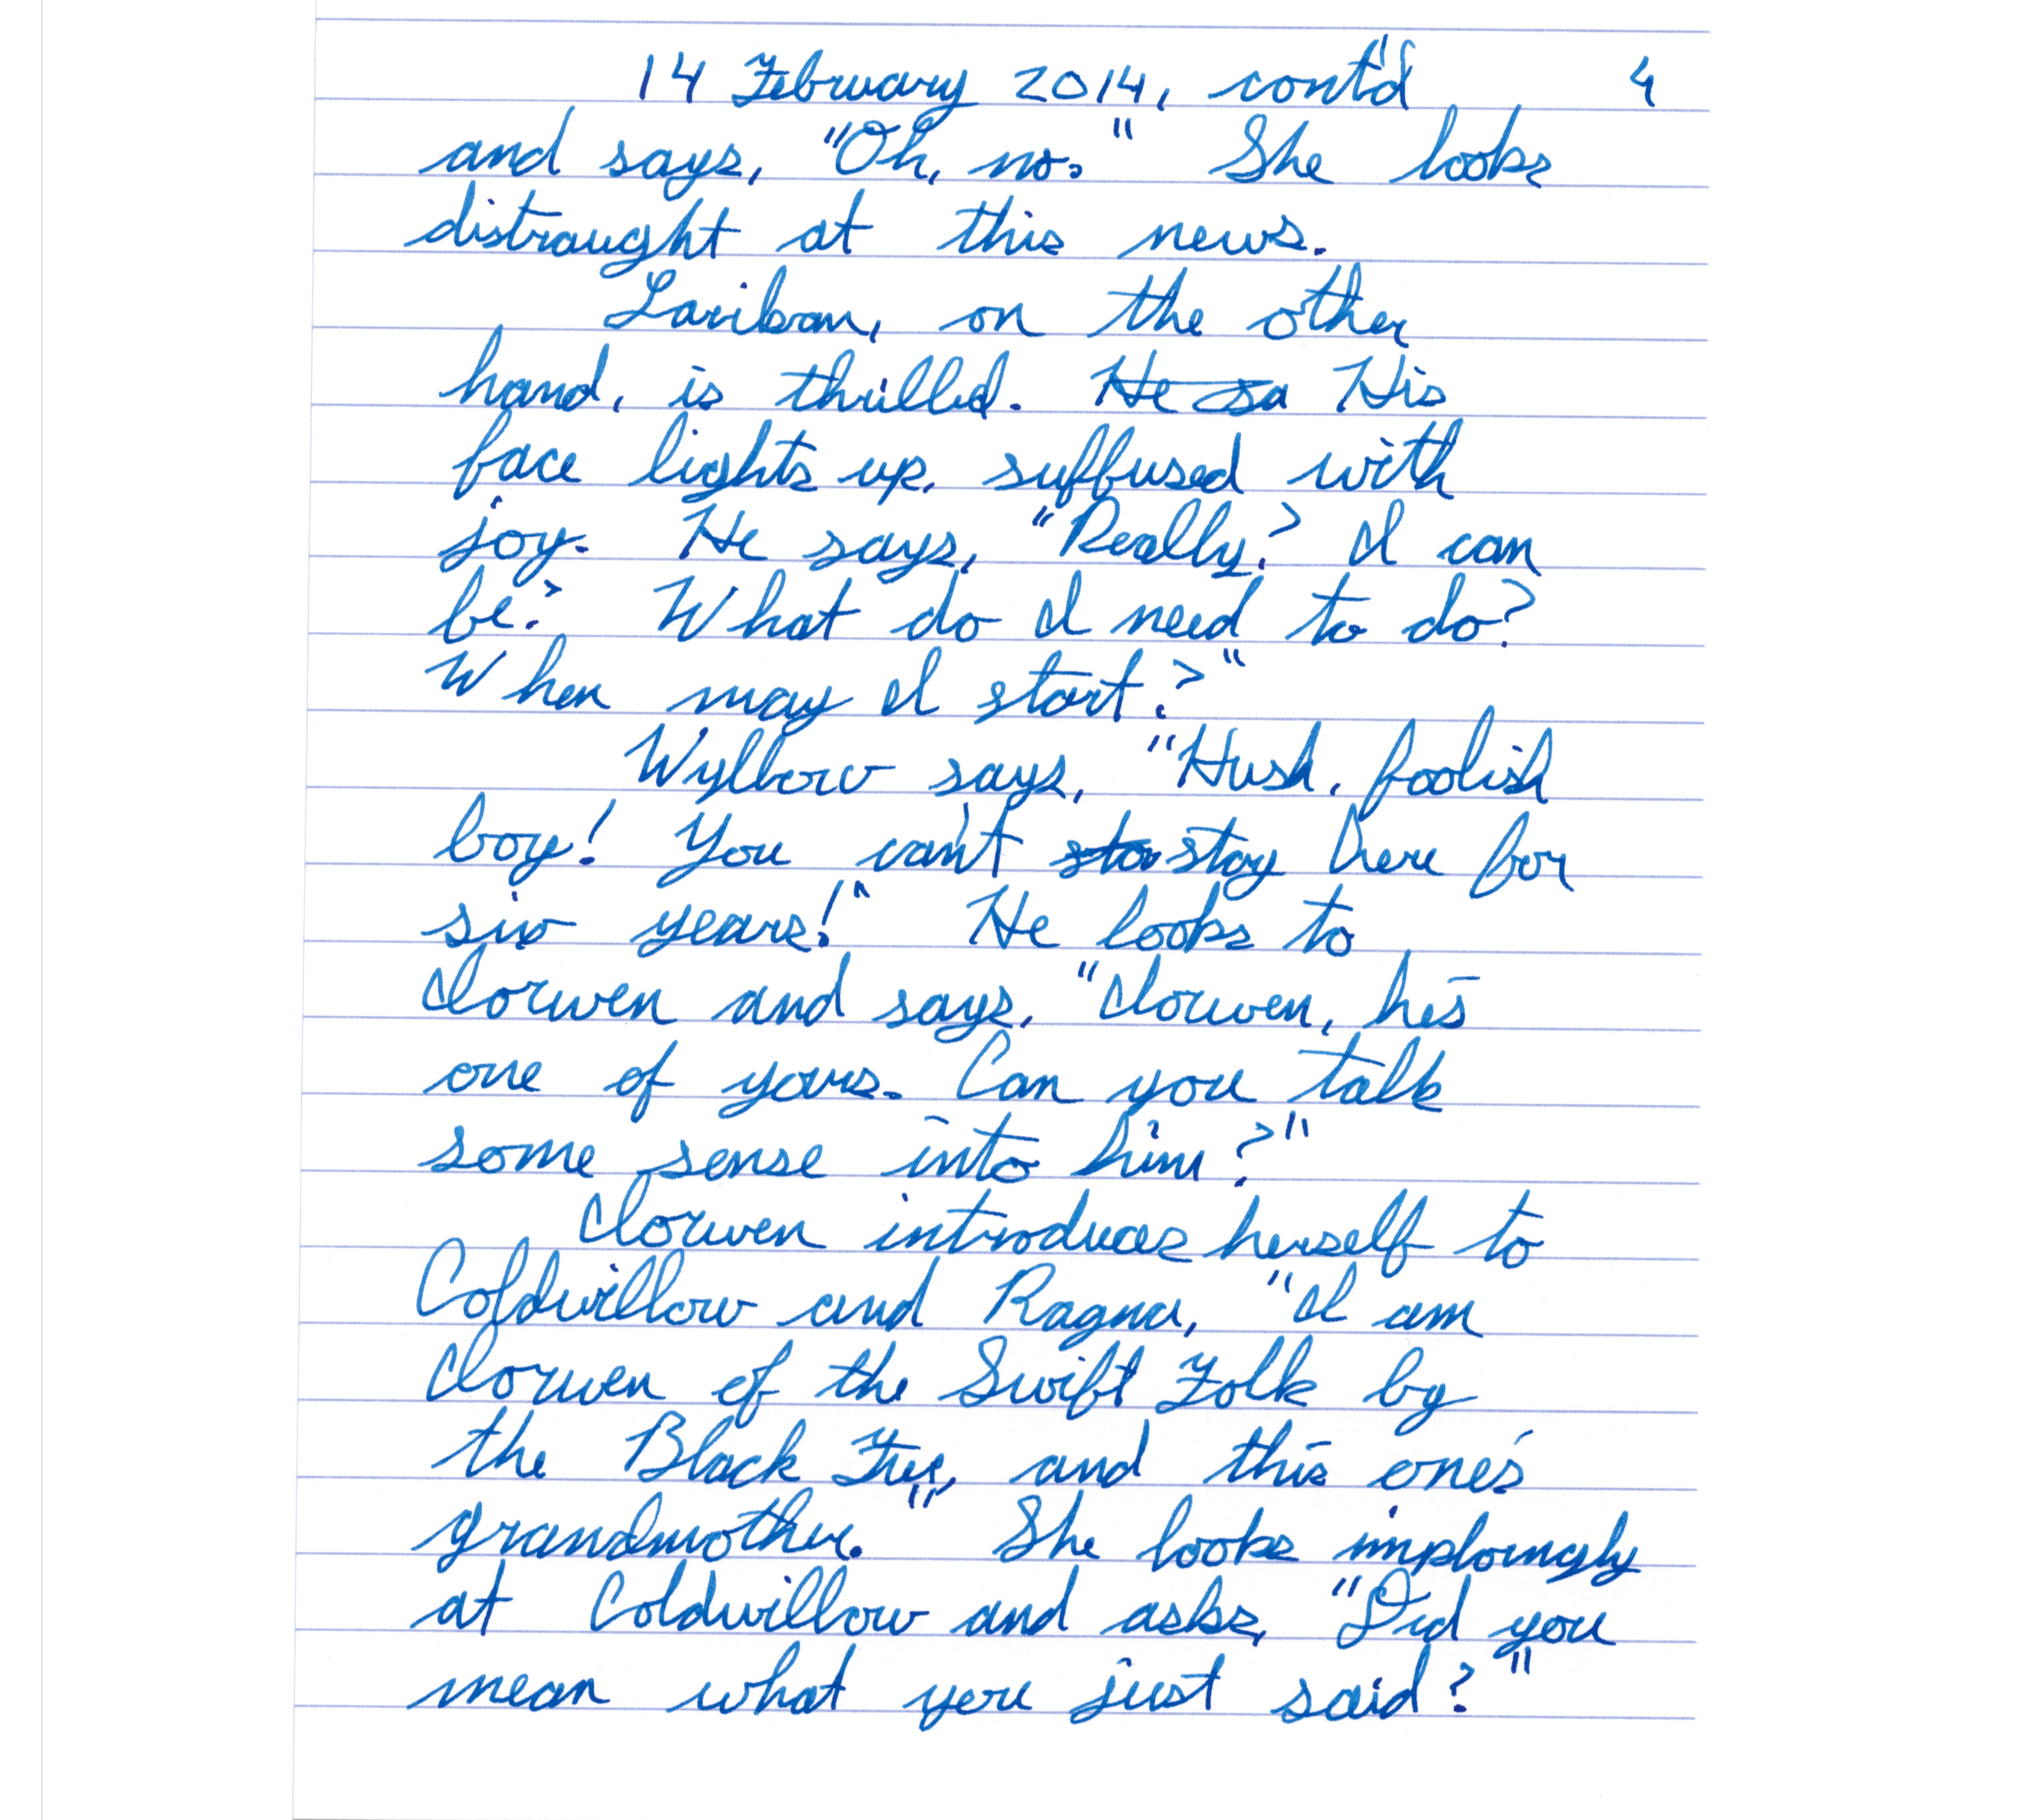 14 February 2014, cont'd 4
and says, "Oh, no." She looks
distraught at this news.
Lariban, on the other
hand, is thrilled. He sa His
face lights up, suffused with
joy. He says, "Really? I can
be? What do I need to do?
When may I start?"
Wylbow says, "Hush, foolish
boy! You can't sta stay here for
six years!" He looks to
Iorwen and says, "Iorwen, he's
one of yours. Can you talk
some sense into him?"
Iorwen introduces herself to
Coldwillow and Ragna, "I am
Iorwen of the Swift Folk by
the Black Tree, and this one's
grandmother." She looks imploringly
at Coldwillow and asks, "Did you
mean what you just said?"